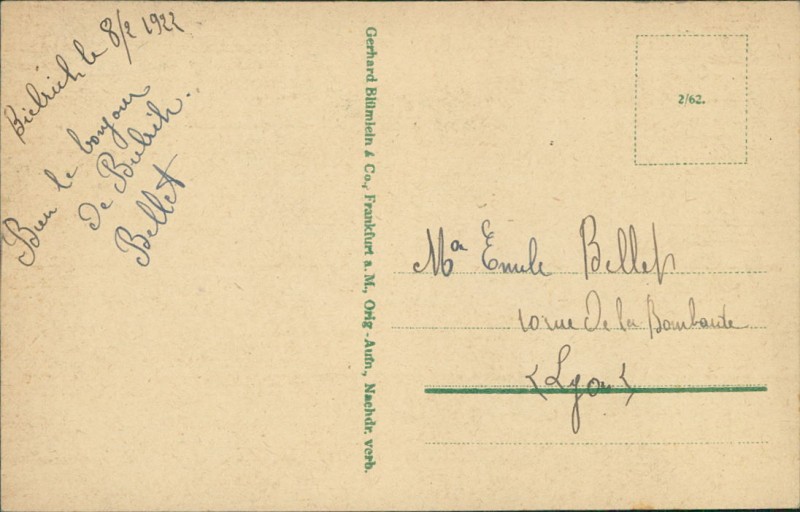 Biebrich le 8/2 1922
Bien le bonjour
de Biebrich.
Bellet
Gerhard Blümlein & Co., Frankfurt a. M., Orig.-Aufn., Nachdr. verb.
2/62.
Mme Emile Bellet
10 rue de la Bombarde
Lyon